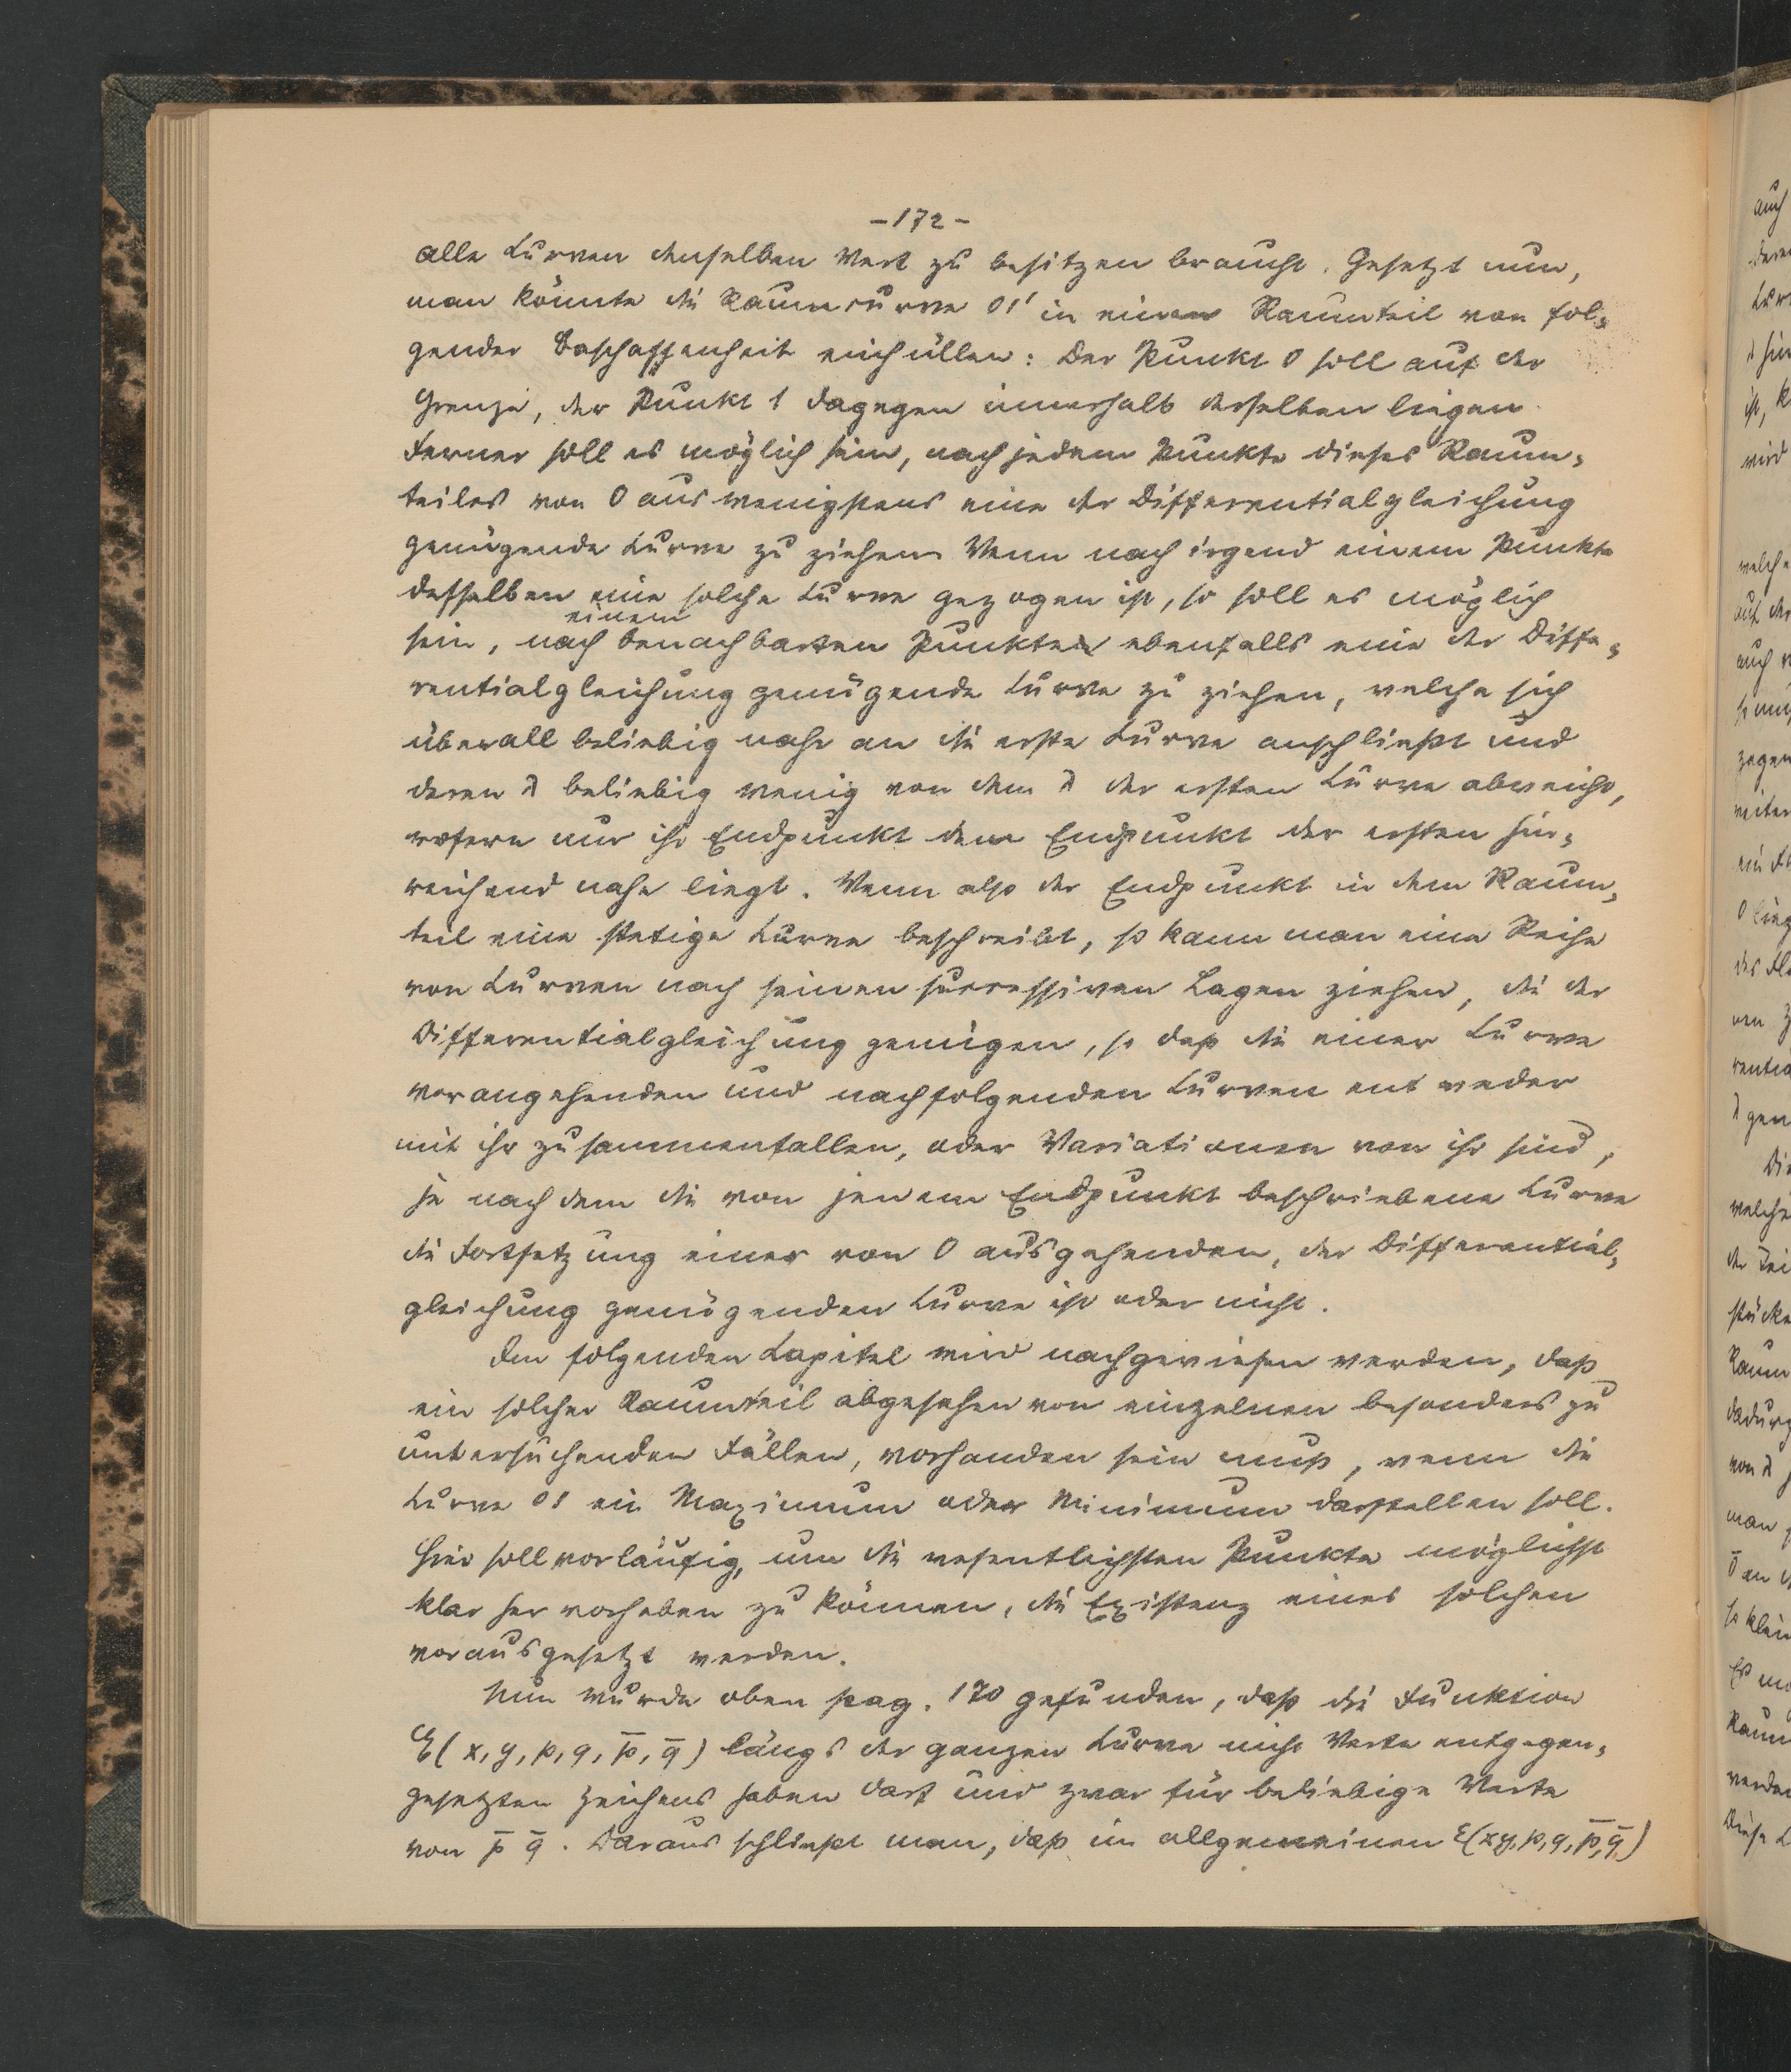 -172-
alle Curven denselben Wert zu besitzen braucht. Gesetzt nun,
man könnte die Raumcurve 01' in einen Raumteil von fol-
gender Beschaffenheit einhüllen: Der Punkt 0 soll auf der
Grenze, der Punkt 1 dagegen innerhalb desselben liegen.
Ferner soll es möglich sein, nach jedem Punkte dieses Raum-
teiles von 0 aus wenigstens eine der Differentialgleichung
genügende Curve zu ziehen. Wenn nach irgend einem Punkte
desselben eine solche Curve gezogen ist, so soll es möglich
einem
sein, nach benachbarten Punkten ebenfalls eine der Diffe-
rentialgleichung genügende Curve zu ziehen, welche sich
überall beliebig nahe an die erste Curve anschließt und
deren λ beliebig wenig von dem λ der ersten Curve abweicht,
wofern nur ihr Endpunkt dem Endpunkt der ersten hin-
reichend nahe liegt. Wenn also der Endpunkt in dem Raum-
teil eine stetige Curve beschreibt, so kann man eine Reihe
von Curven nach seinen successiven Lagen ziehen, die der
Differentialgleichung genügen, so daß die einer Curve
vorangehenden und nachfolgenden Curven entweder
mit ihr zusammenfallen, oder Variationen von ihr sind,
je nachdem die von jenem Endpunkt beschriebene Curve
die Fortsetzung einer von 0 ausgehenden, der Differential-
gleichung genügenden Curve ist oder nicht.
Im folgenden Capitel wird nachgewiesen werden, daß
ein solcher Raumteil abgesehen von einzelnen besonders zu
untersuchenden Fällen, vorhanden sein muß, wenn die
Curve 01 ein Maximum oder Minimum darstellen soll.
Hier soll vorläufig, um die wesentlichsten Punkte möglichst
klar hervorheben zu können, die Existenz eines solchen
vorausgesetzt werden.
Nun wurde oben pag. 170 gefunden, daß die Funktion
ℰ(x, y, p, q, p̄, q̄) längs der ganzen Curve nicht Werte entgegen-
gesetzten Zeichens haben darf und zwar für beliebige Werte
von p̄ q̄. Daraus schließt man, daß im allgemeinen ℰ(xy, p, q, p̄, q̄)